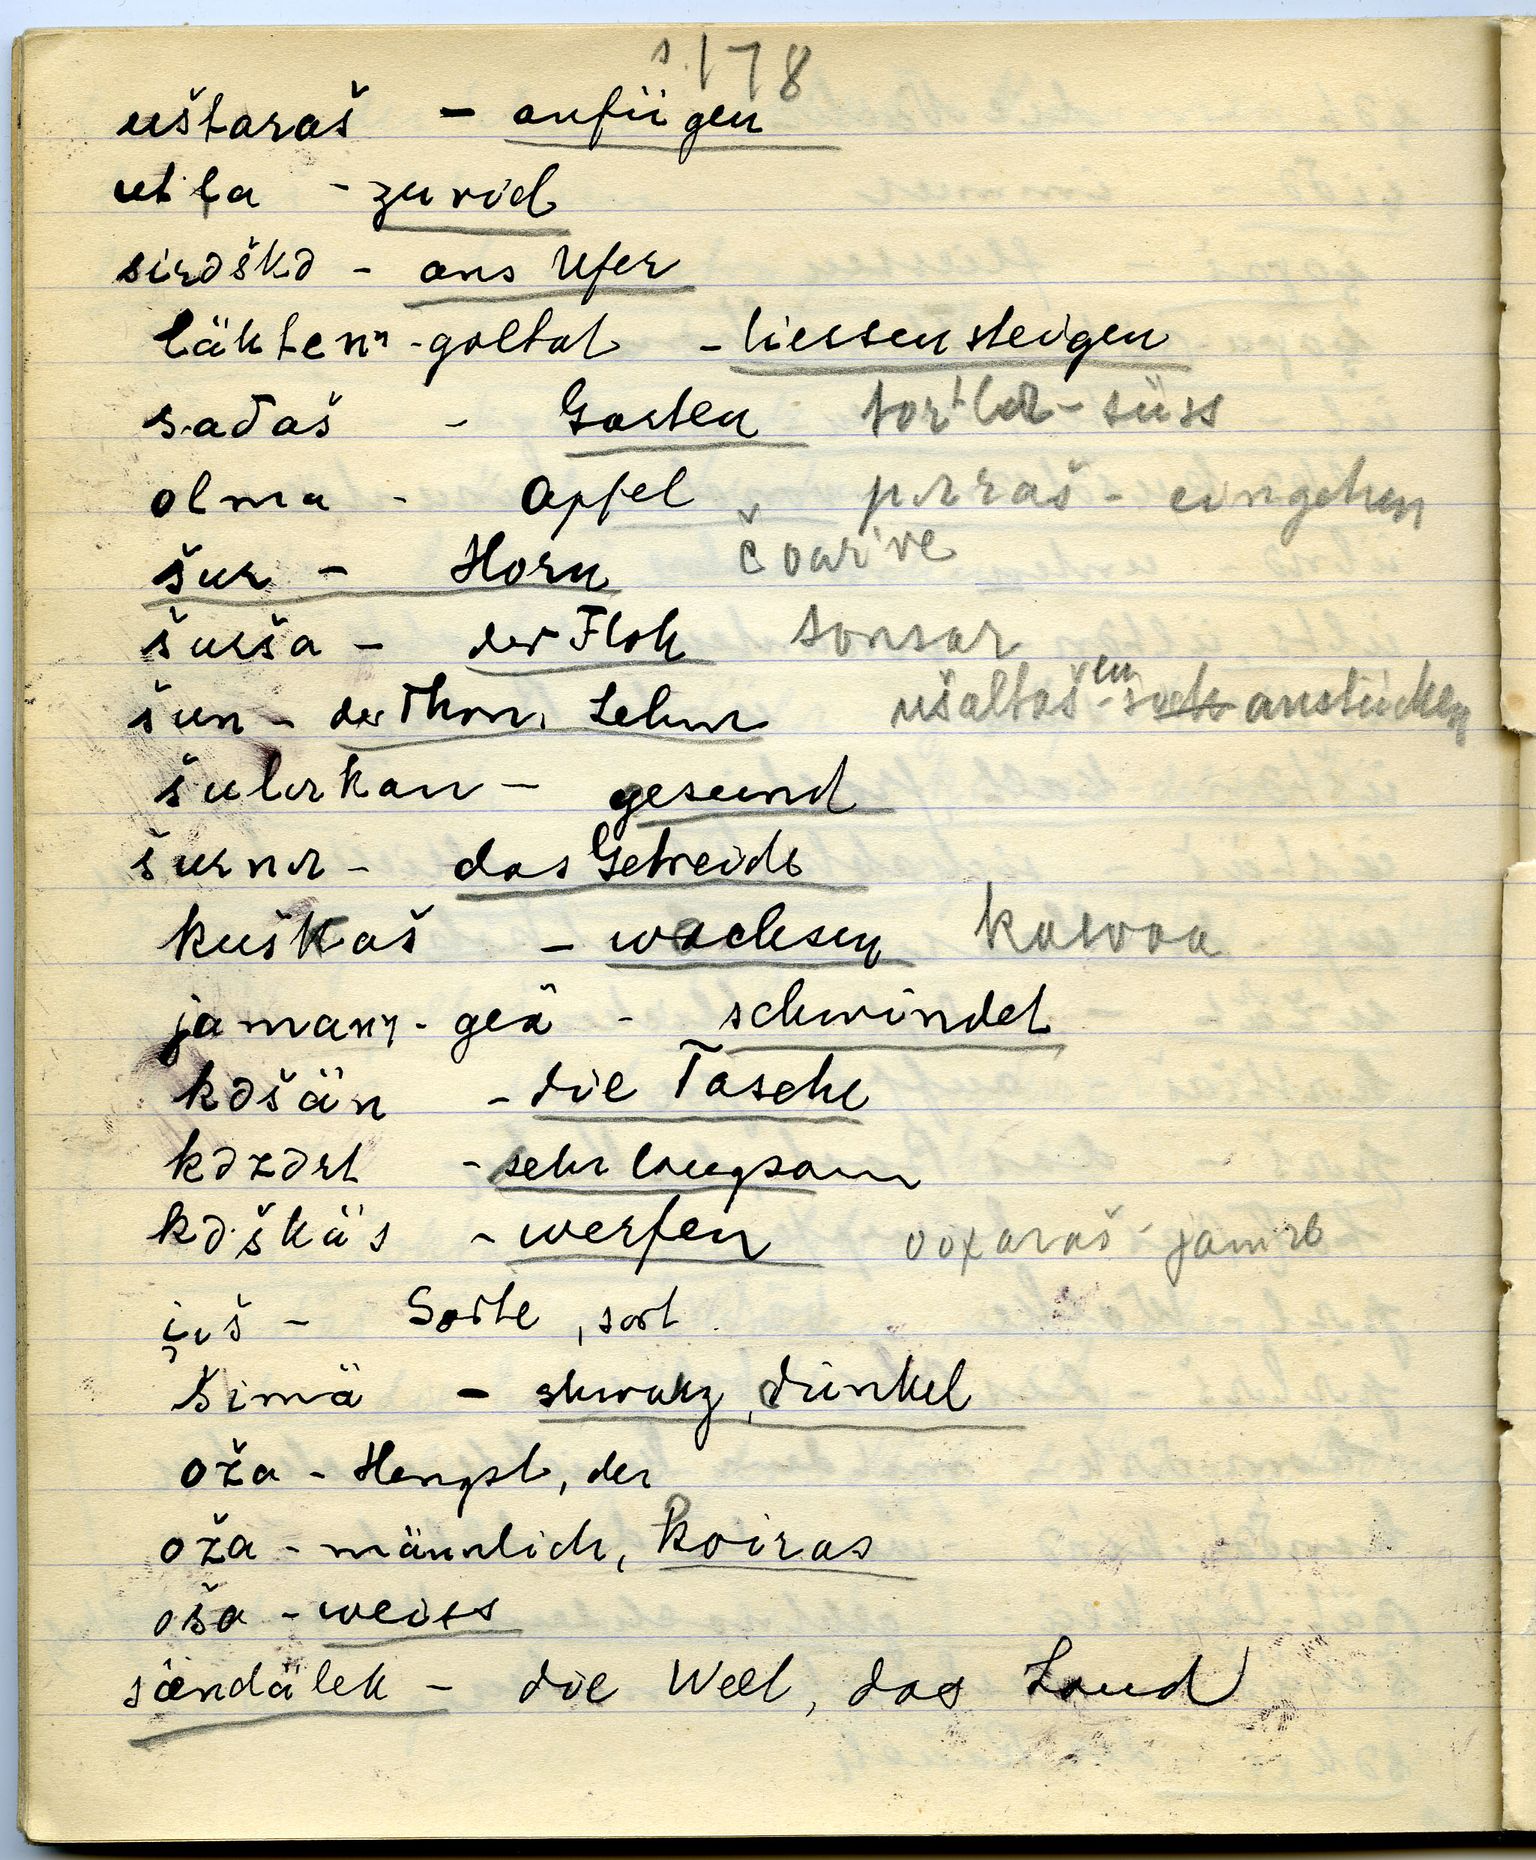 s. 178
uštaraš – anfügen
utla – zuviel
sirəškə – ans Ufer
läktenˀ-goltat – liessen steigen
sadaš – Garten tor'lər – süss
olma – Apfel pəraš – eingehen
šur – Horn čoar've
šuršа – der Floh sonsar
šun – der Thon, Lehm ušaltaš – anstücken
šulərkan – gesund
šurnə – das Getreide
kuškaš – wachsen kawoa
jamaŋ-geä – schwindet
kəšän – die Tasche
kəzərt – sehr langsam
kəškäš – werfen ooχaraš – jamre
iš – Sorte, sort
šimä – shwarz, dunkel
oža – Hengst, der
oža – männlich, koiras
oša – weiss
sändälek – die Welt, das Land